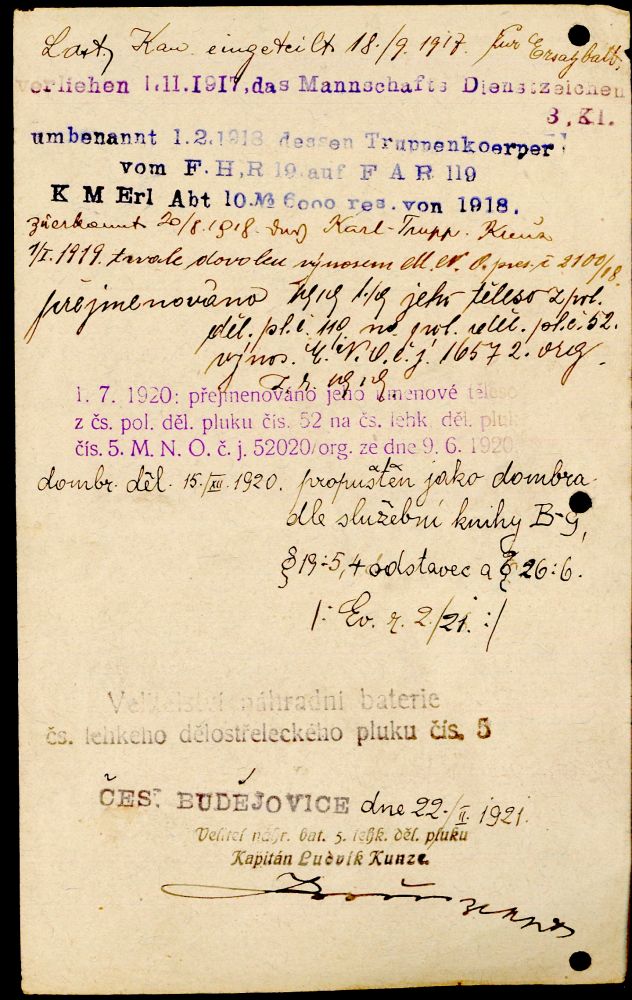 Kan. eingeteilt 18./9. 1917. für Ersatzbatt.
verliehen 1.11.1917, das Mannschafts Dienstzeichen
3. Kl.
umbenannt 1.2.1918 dessen Truppenkoerper
vom F.H.R 19. auf F A R 119
K M Erl Abt 10.№ 6000 res. von 1918.
zuerkannt 20/8. 1918. das Karl-Trupp. Kreuz
1/I. 1919. trvale dovolen výnosem M. N. O. pres. č 2100/18.
přejmenováno 1919 jeho těleso z pol.
děl. pl. č. 119 na pol. děl. pl. č. 52.
výnos. M. N. O. č. j. 16572. org.
z. r. 1919.
1. 7. 1920: přejmenováno jeho kmenové těleso
z čs. pol. děl. pluku čís. 52 na čs. lehk. děl. pluk
čís. 5. M. N. O. č. j. 52020/org. ze dne 9. 6. 1920
dombr. děl. 15./XII. 1920. propuštěn jako dombra.
dle služební knihy B-9,
§ 19:5, 4 odstavec a § 26:6.
/: Ev. r. 2/21. :/
Velitelství náhradní baterie
čs. lehkého dělostřeleckého pluku čís. 5
ČES. BUDĚJOVICE dne 22./II. 1921.
Velitel náhr. bat. 5. lehk. děl. pluku
Kapitán Ludvík Kunze.